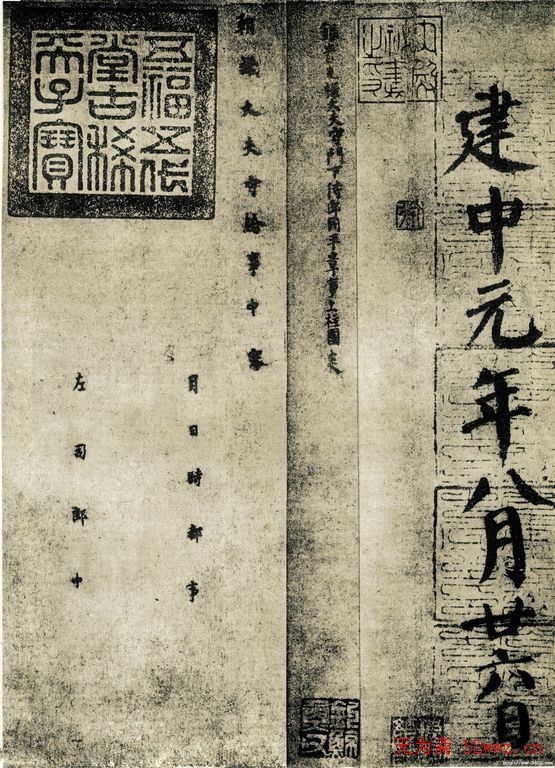 建中元年八月廿六日
銀青光祿大夫守門下侍郎同平章事上柱國炎
朝議大夫守給事中審
月日時都事
左司郎中
五福五代
堂古稀
天子寶